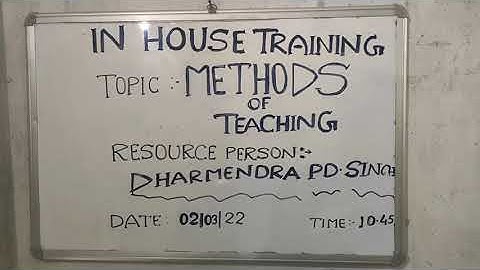 IN HOUSE TRAINING
TOPIC :- METHODS
OF
TEACHING
RESOURCE PERSON:-
DHARMENDRA PD. SINGH
DATE: 02/03/22 TIME:- 10.45